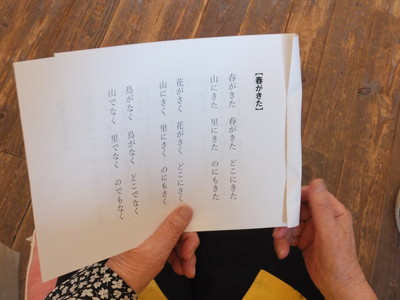 【春がきた】
春がきた　春がきた　どこにきた
山にきた　里にきた　のにもきた
花がさく　花がさく　どこにさく
山にさく　里にさく　のにもさく
鳥がなく　鳥がなく　どこでなく
山でなく　里でなく　のでもなく